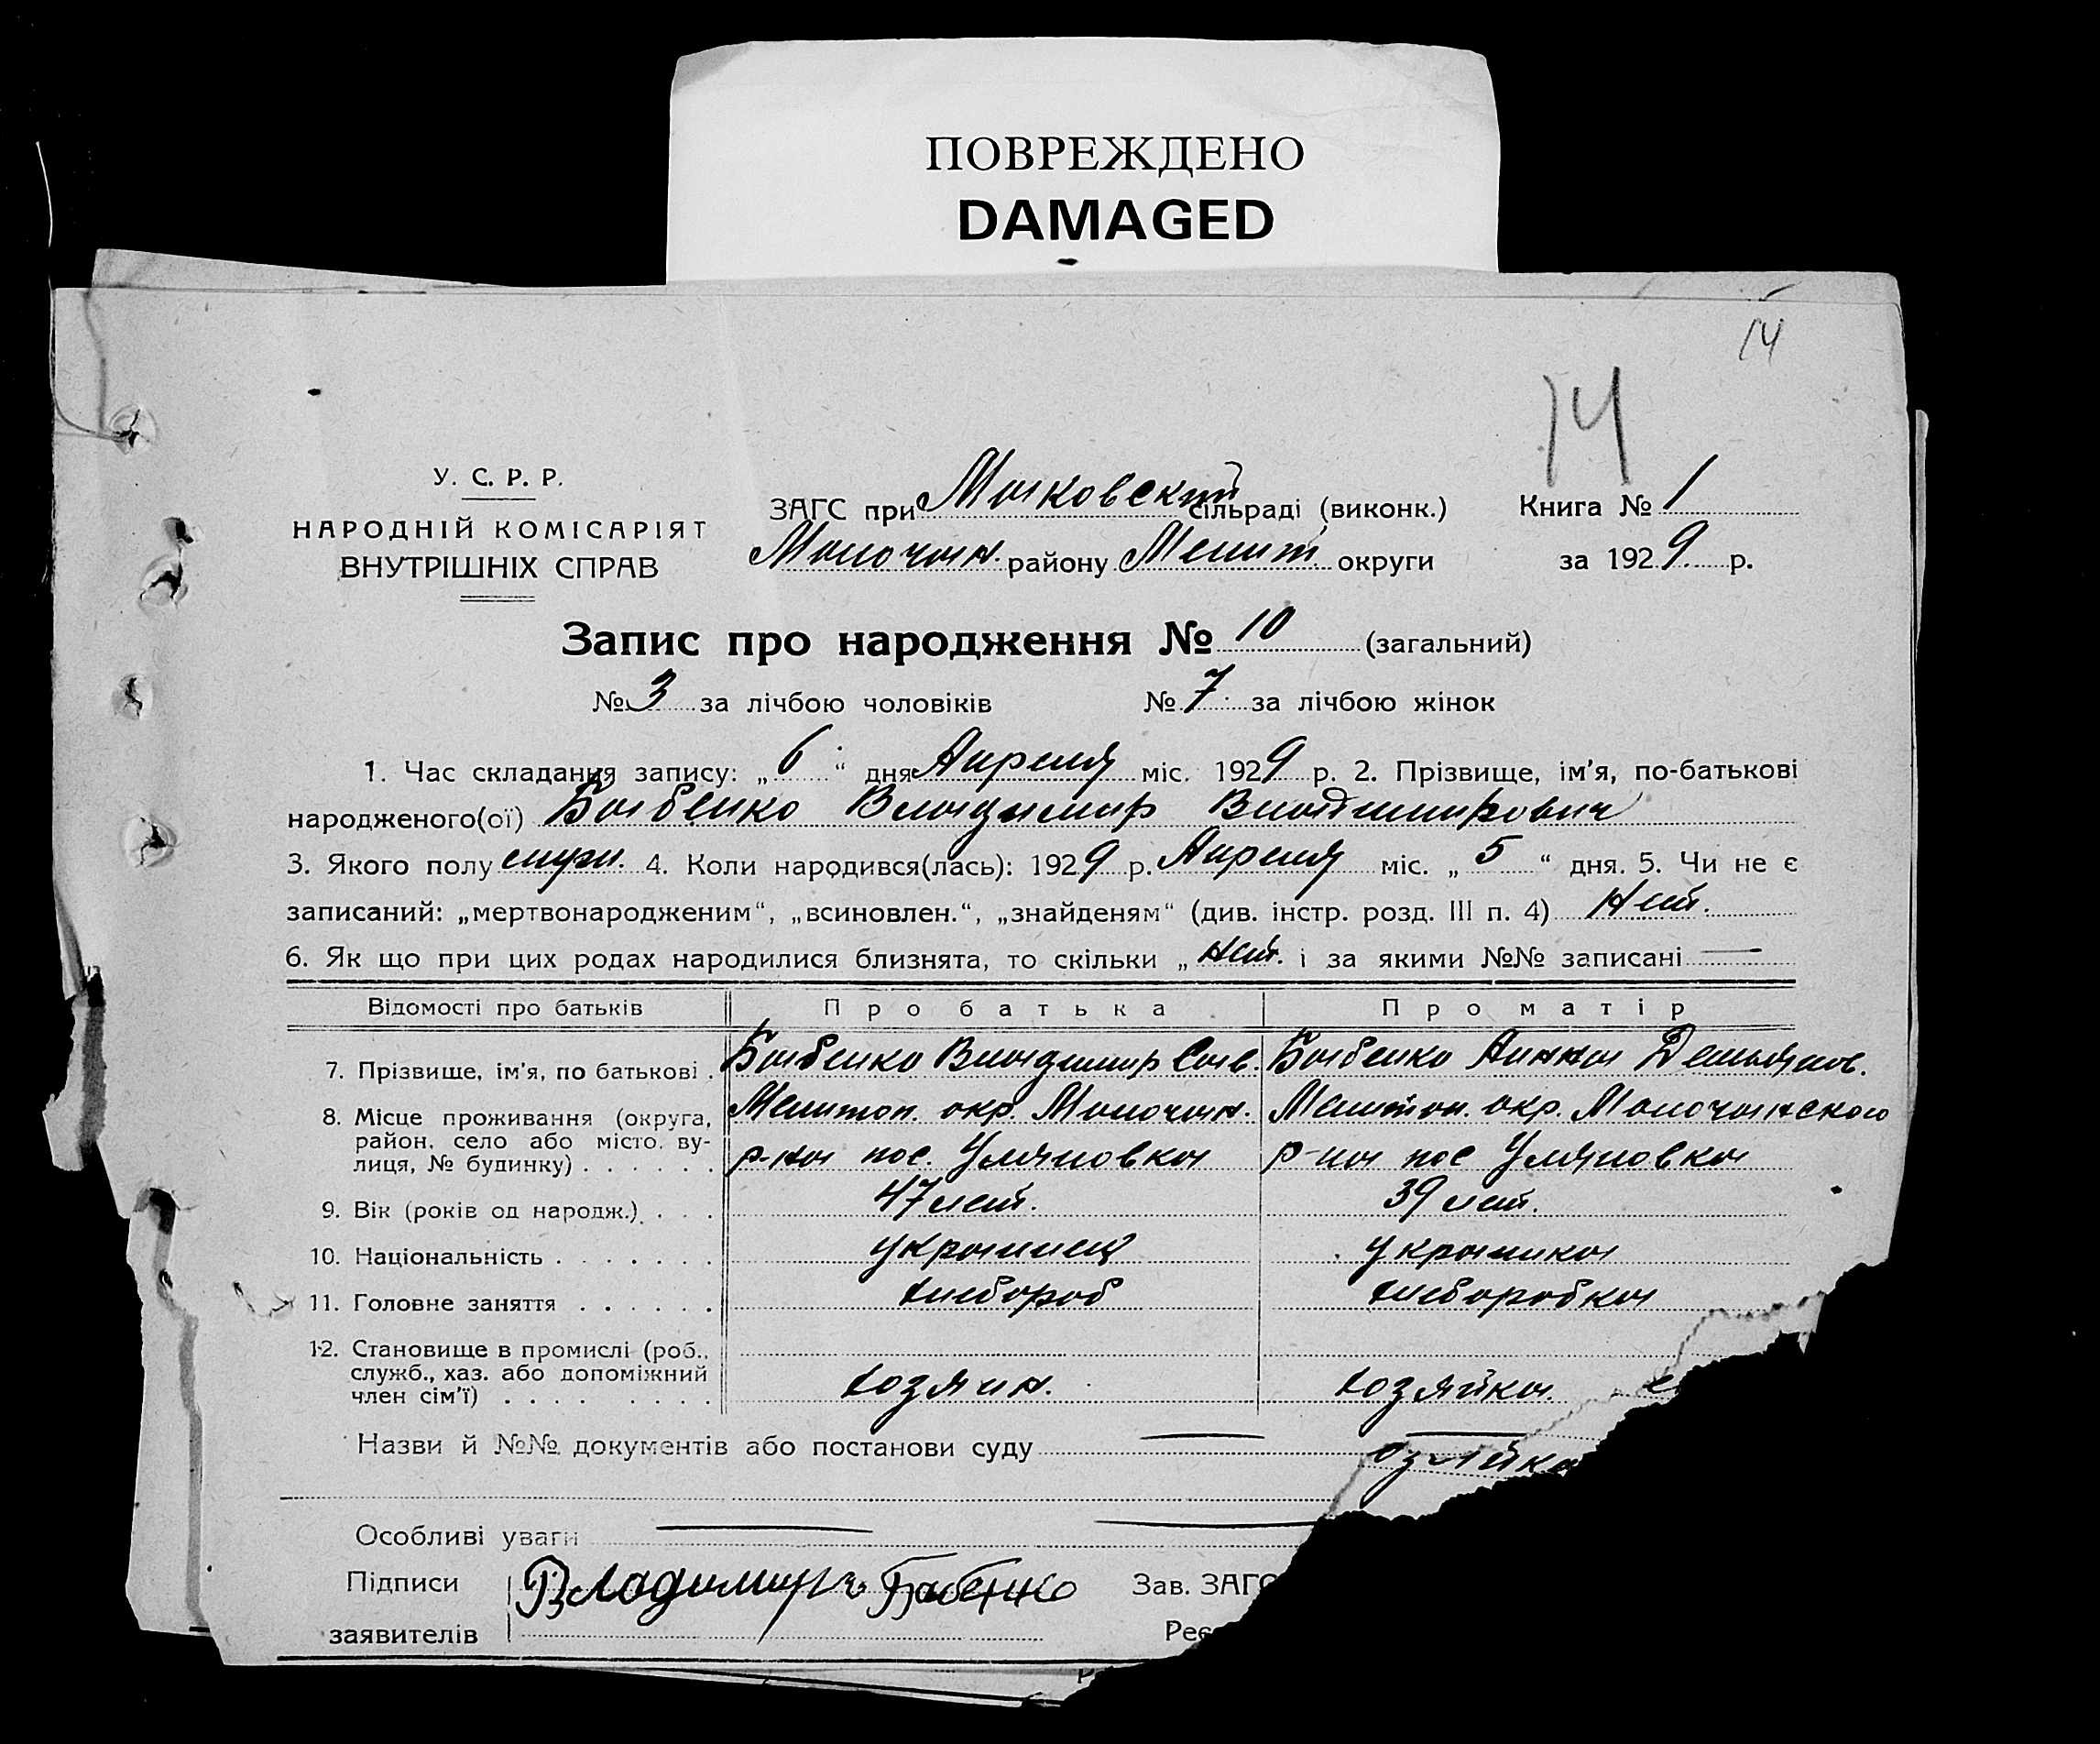 ПОВРЕЖДЕНО
DAMAGED
14
14
У. С. Р. Р.
НАРОДНІЙ КОМІСАРІЯТ
ВНУТРІШНІХ СПРАВ
ЗАГС при сільраді (виконк.) Книга № 1
Молочан. району Мелит. округи за 1929 р.
Запис про народження № 10 (загальний)
№ 3 за лічбою чоловіків № 7 за лічбою жінок
1. Час складання запису: „6“ дня Апреля міс. 1929 р. 2. Прізвище, ім'я, по-батькові
народженого(ої) Бабенко Владимир Владимирович
3. Якого полу муж. 4. Коли народився(лась): 1929 р. Апреля міс. „5“ дня. 5. Чи не є
записаний: „мертвонародженим“, „всиновлен.“, „знайденям“ (див. інстр. розд. III п. 4) Нет.
6. Як що при цих родах народилися близнята, то скільки „ нет. і за якими №№ записані —
Відомості про батьків Про батька Про матір
7. Прізвище, ім'я, по батькові . Бабенко Владимир Сав. Бабенко Анна Демьянов.
8. Місце проживання (округа, район, село або місто, вулиця, № будинку) . . . . . . Мелитоп. окр. Молочан. Мелитоп. окр. Молочанского
р-на пос. Уляновка р-на пос Уляновка
9. Вік (років од народж.) . . . 47 лет. 39 лет.
10. Національність . . . . . . . украинец украинка
11. Головне заняття . . . . . . хлебороб хлеборобка
12. Становище в промислі (роб., служб., хаз. або допоміжний член сім'ї) . . . . . . . . хозяин. хозяйка.
Назви й №№ документів або постанови суду — —
озяйка
Особливі уваги — —
Підписи Владимиръ Бабенко Зав. ЗАГС
заявителів Реє